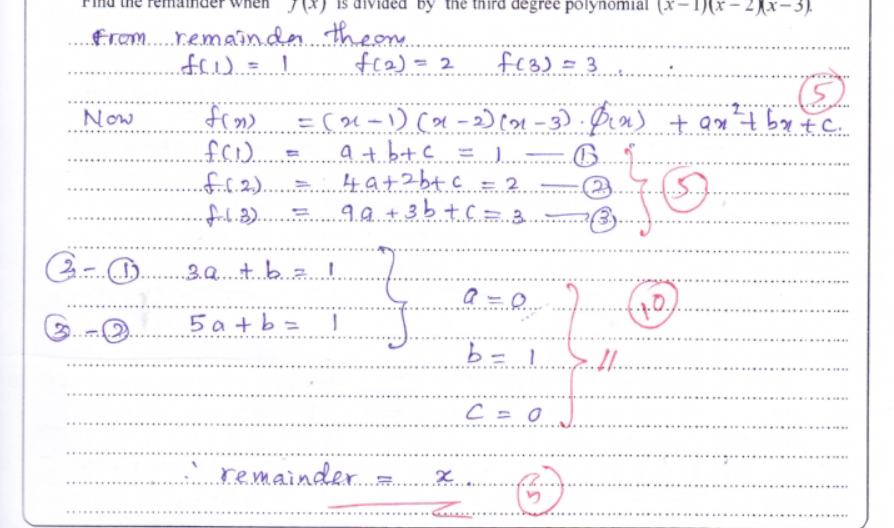 Find the remainder when f(x) is divided by the third degree polynomial (x-1)(x-2)(x-3).
from remainder theom
f(1) = 1 f(2) = 2 f(3) = 3 .
5
Now f(x) = (x-1)(x-2)(x-3) · ϕ(x) + ax²+bx+c.
f(1) = a+b+c = 1 — ①
f(2) = 4a+2b+c = 2 — ②
5
f(3) = 9a+3b+c = 3 — ③
② - ① 3a + b = 1
a = 0
10
③ - ② 5a + b = 1
b = 1 //
c = 0
∴ remainder = x .
5